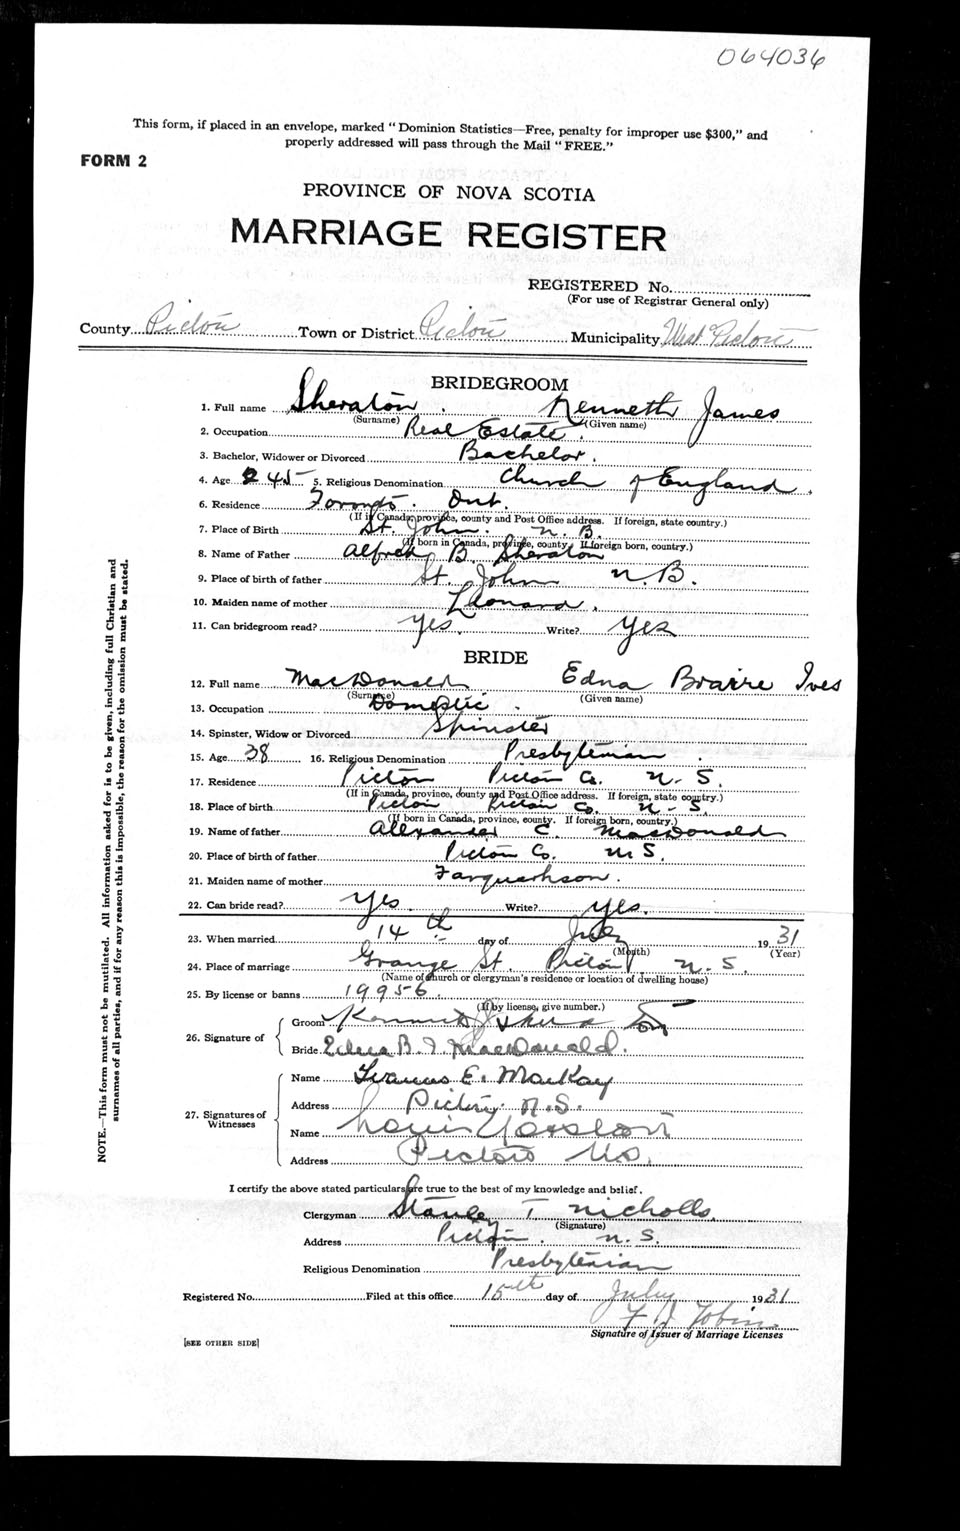 064036
This form, if placed in an envelope, marked "Dominion Statistics—Free, penalty for improper use $300," and
properly addressed will pass through the Mail "FREE."
FORM 2
PROVINCE OF NOVA SCOTIA
MARRIAGE REGISTER
REGISTERED No.
(For use of Registrar General only)
County Pictou Town or District Pictou Municipality West Pictou
BRIDEGROOM
1. Full name Sheraton Kenneth James
(Surname) (Given name)
2. Occupation Real Estate.
3. Bachelor, Widower or Divorced Bachelor.
4. Age 45 5. Religious Denomination Church of England.
6. Residence Toronto. Ont.
(If in Canada, province, county and Post Office address. If foreign, state country.)
7. Place of Birth St. John. N.B.
(If born in Canada, province, county. If foreign born, country.)
8. Name of Father Alfred B. Sheraton
9. Place of birth of father St. John N.B.
10. Maiden name of mother Leonard.
11. Can bridegroom read? Yes. Write? Yes
BRIDE
12. Full name MacDonald Edna Ives
(Surname) (Given name)
13. Occupation Domestic.
14. Spinster, Widow or Divorced Spinster
15. Age 38 16. Religious Denomination Presbyterian.
17. Residence Pictou Pictou Co. N.S.
(If in Canada, province, county and Post Office address. If foreign, state country.)
18. Place of birth Pictou Pictou Co. N.S.
(If born in Canada, province, county. If foreign born, country.)
19. Name of father Alexander C. MacDonald
20. Place of birth of father Pictou Co. N.S.
21. Maiden name of mother Farquarhson.
22. Can bride read? Yes. Write? Yes.
23. When married 14th day of July 1931
(Month) (Year)
24. Place of marriage Grange St. Pictou, N.S.
(Name of church or clergyman's residence or location of dwelling house)
25. By license or banns 19956.
(If by license, give number.)
26. Signature of
Groom Kenneth J
Bride Edna B. I. MacDonald.
27. Signatures of Witnesses
Name E. MacKay
Address Pictou N.S.
Name
Address Pictou N.S.
I certify the above stated particulars are true to the best of my knowledge and belief.
Clergyman Stanley T Nicholls.
(Signature)
Address Pictou. N.S.
Religious Denomination Presbyterian
Registered No. Filed at this office 15th day of July 1931
F J Tobin
Signature of Issuer of Marriage Licenses
[SEE OTHER SIDE]
NOTE.—This form must not be mutilated. All information asked for is to be given, including full Christian and
surnames of all parties, and if for any reason this is impossible, the reason for the omission must be stated.